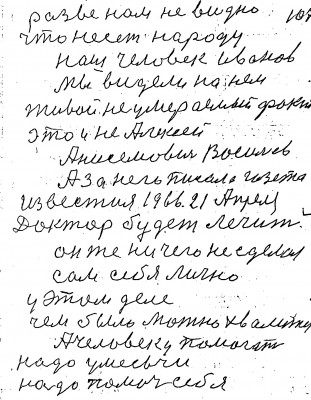 разве нам не видно 107
что несет народу
наш человек иванов
мы видели на нем
живой не умераемый факт
это и не Алексей
Анисемович Восилев
А за него писала газета
известия 1966. 21 Апрел
Доктор будет лечит.
он же ничего не сделал
сам себя лично
у этом деле
чем было можно хвалитца
А человеку помогат
надо умесьчи
надо помоч себя